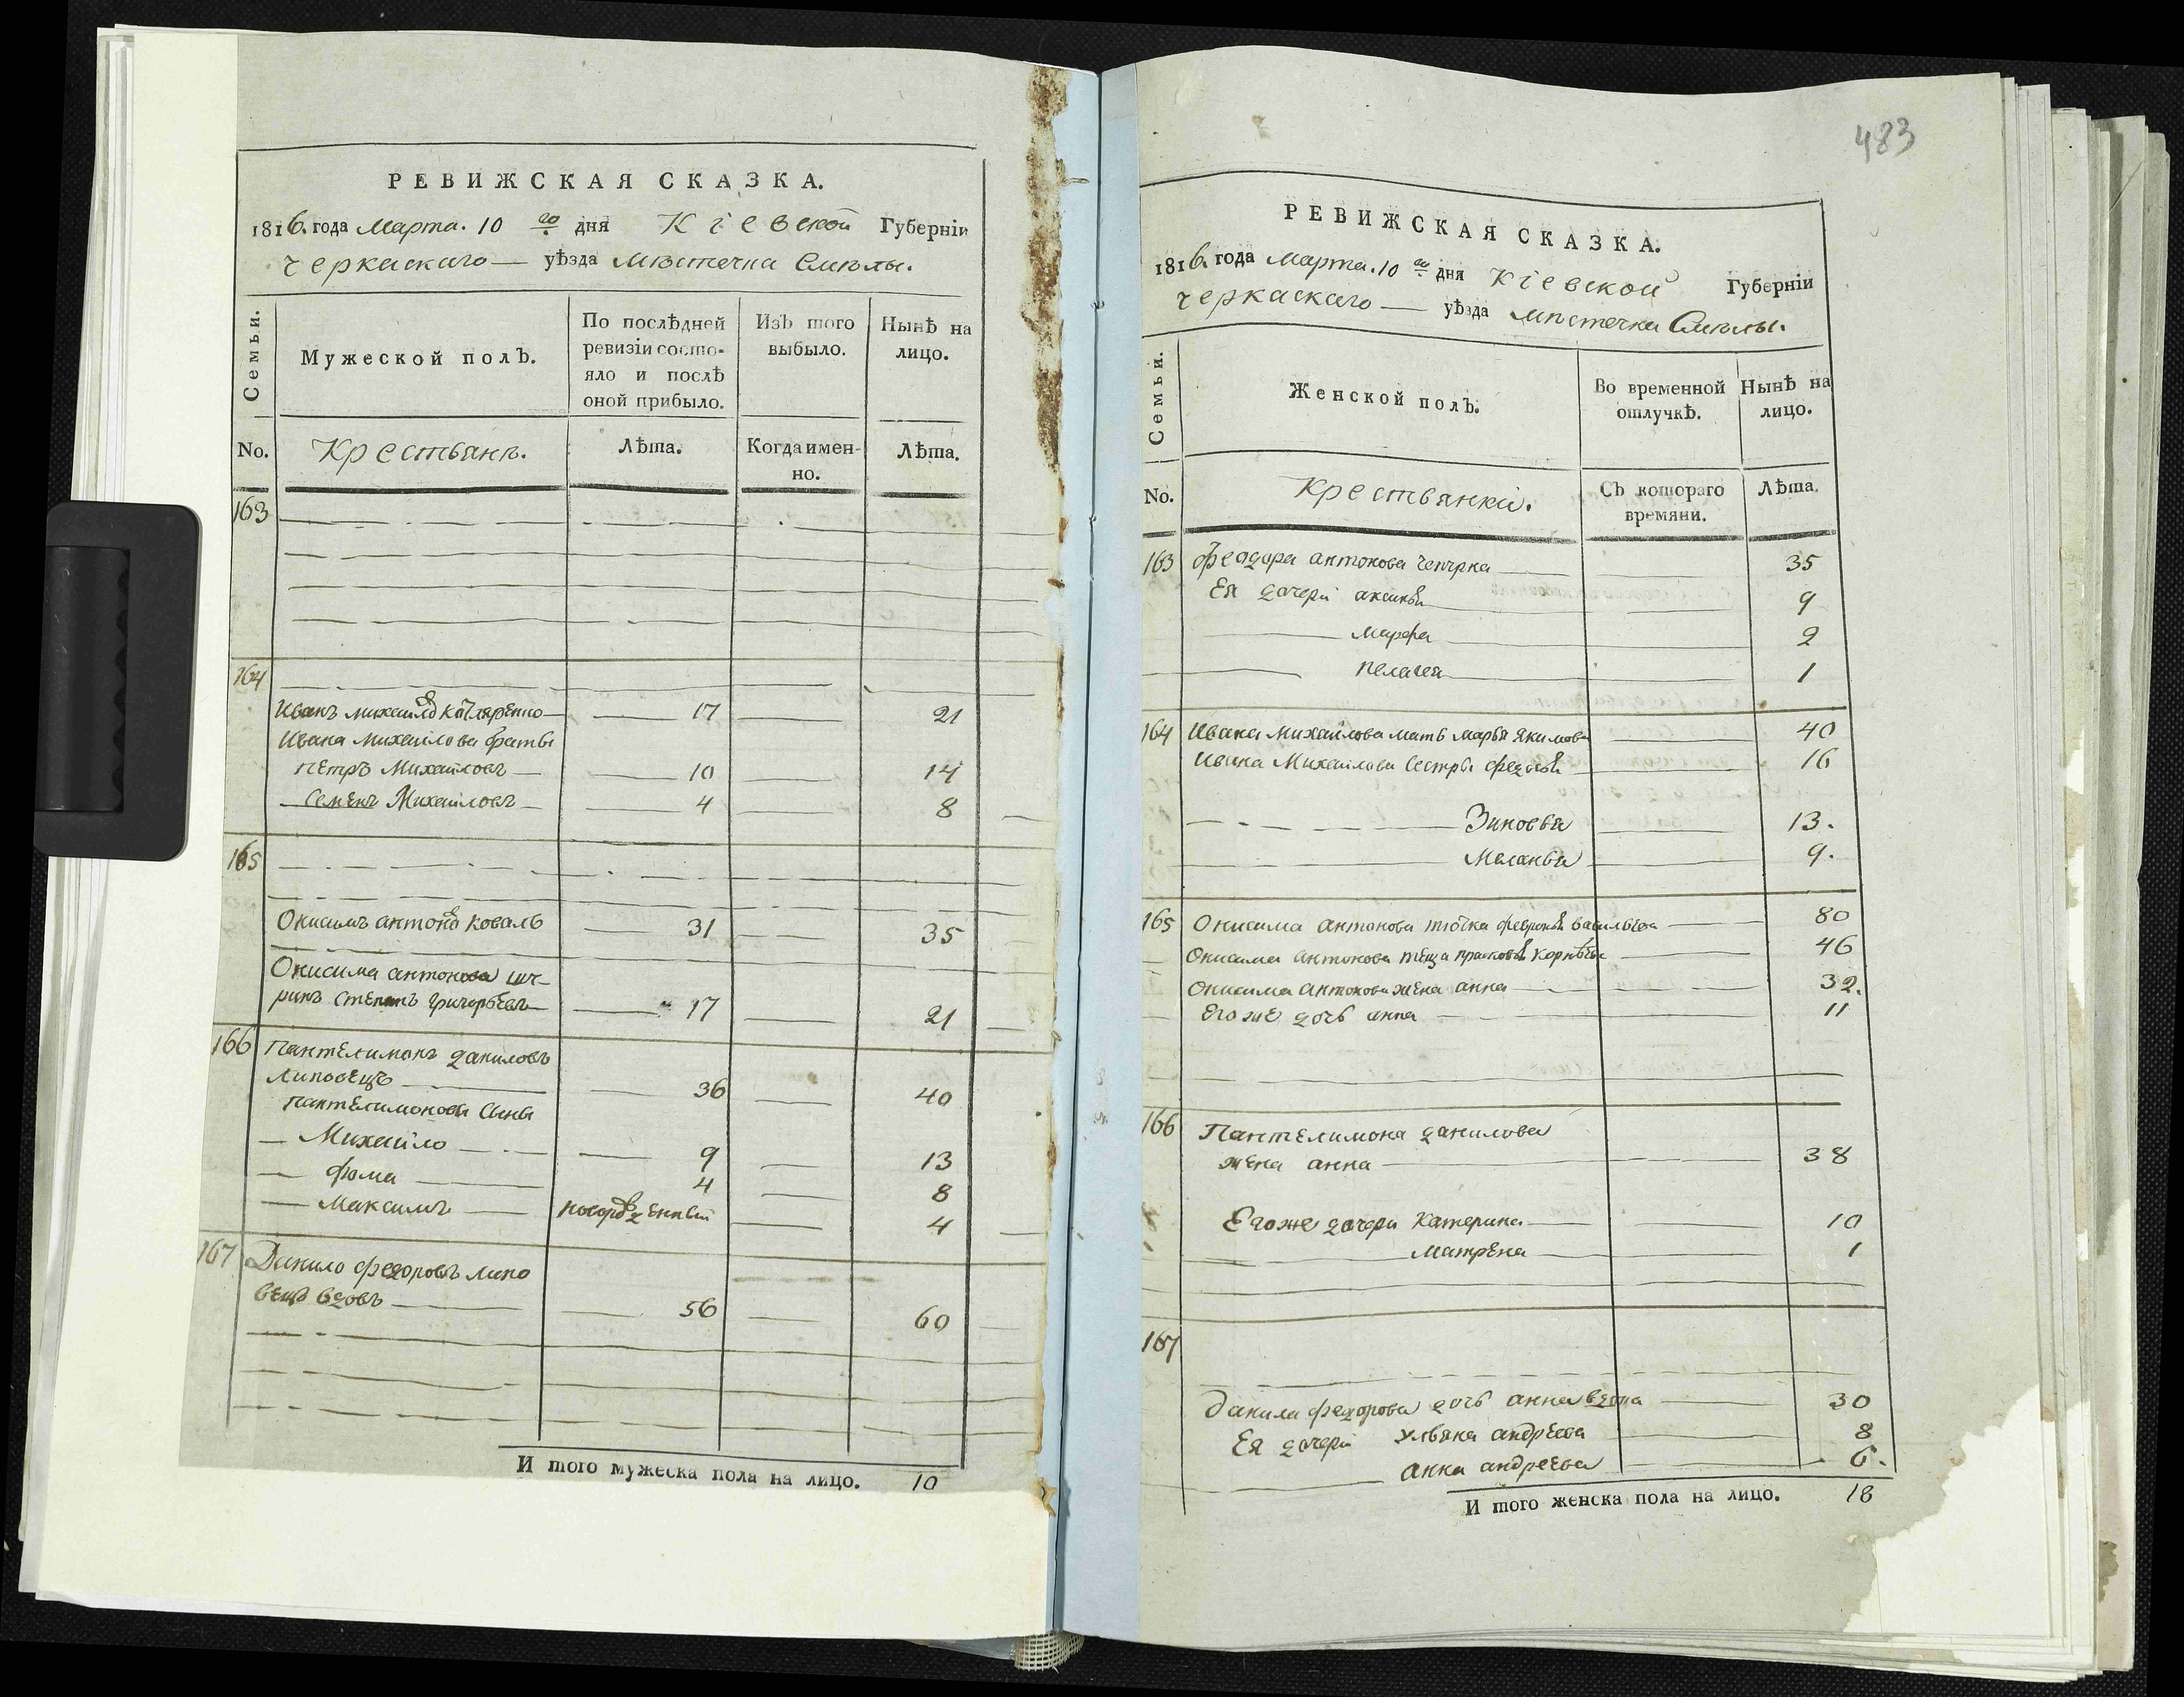 РЕВИЖСКАЯ СКАЗКА.
1816. года Марта. 10 го дня Кіевской Губерніи
Черкаскаго уѣзда Мѣстечка Смѣлы.
Семьи.
Мужеской полЪ.
По послѣдней ревизіи состояло и послѣ оной прибыло.
ИзЪ того выбыло.
Нынѣ на лицо.
No. Крестьянъ. Лѣта. Когда именно. Лѣта.
163
164
Иванъ Михайловъ Котляренко 17 21
Ивана Михайлова братья
Петръ Михайловъ 10 14
Семенъ Михайловъ 4 8
165
Онисимъ антоновъ коваль 31 35
Онисима антонова шу-
ринъ Степанъ григорьевъ 17 21
166 Пантелимонъ даниловъ
Липовецъ 36 40
Пантелимонова Сыны
Михайло 9 13
фома 4 8
Максимъ новорожденный 4
167 Данило федоровъ липо
вецъ вдовъ 56 60
И того мужеска пола на лицо. 10
483
РЕВИЖСКАЯ СКАЗКА.
1816. года Марта. 10 го дня Кіевской Губерніи
Черкаскаго уѣзда Мѣстечка Смѣлы.
Семьи.
Женской полЪ.
Во временной отлучкѣ.
Нынѣ на лицо.
No. Крестьянки. СЪ котораго времяни. Лѣта.
163 феодора антонова 35
Ея дочери аксинья 9
марфа 2
пелагея 1
164 Ивана Михайлова мать марья якимова 40
Ивана Михайлова Сестры федосья 16
Зиновья 13.
Меланья 9.
165 Онисима антонова тіотка февронья васильева 80
Онисима антонова теща прасковья корнѣева 46
Онисима антонова жена анна 32.
Его же дочь анна 11
166 Пантелимона данилова
жена анна 38
Его же дочери катерина 10
матрена 1
167
Данила федорова дочь анна вдова 30
Ея дочери ульяна андреева 8
анна андреева 6.
И того женска пола на лицо. 18